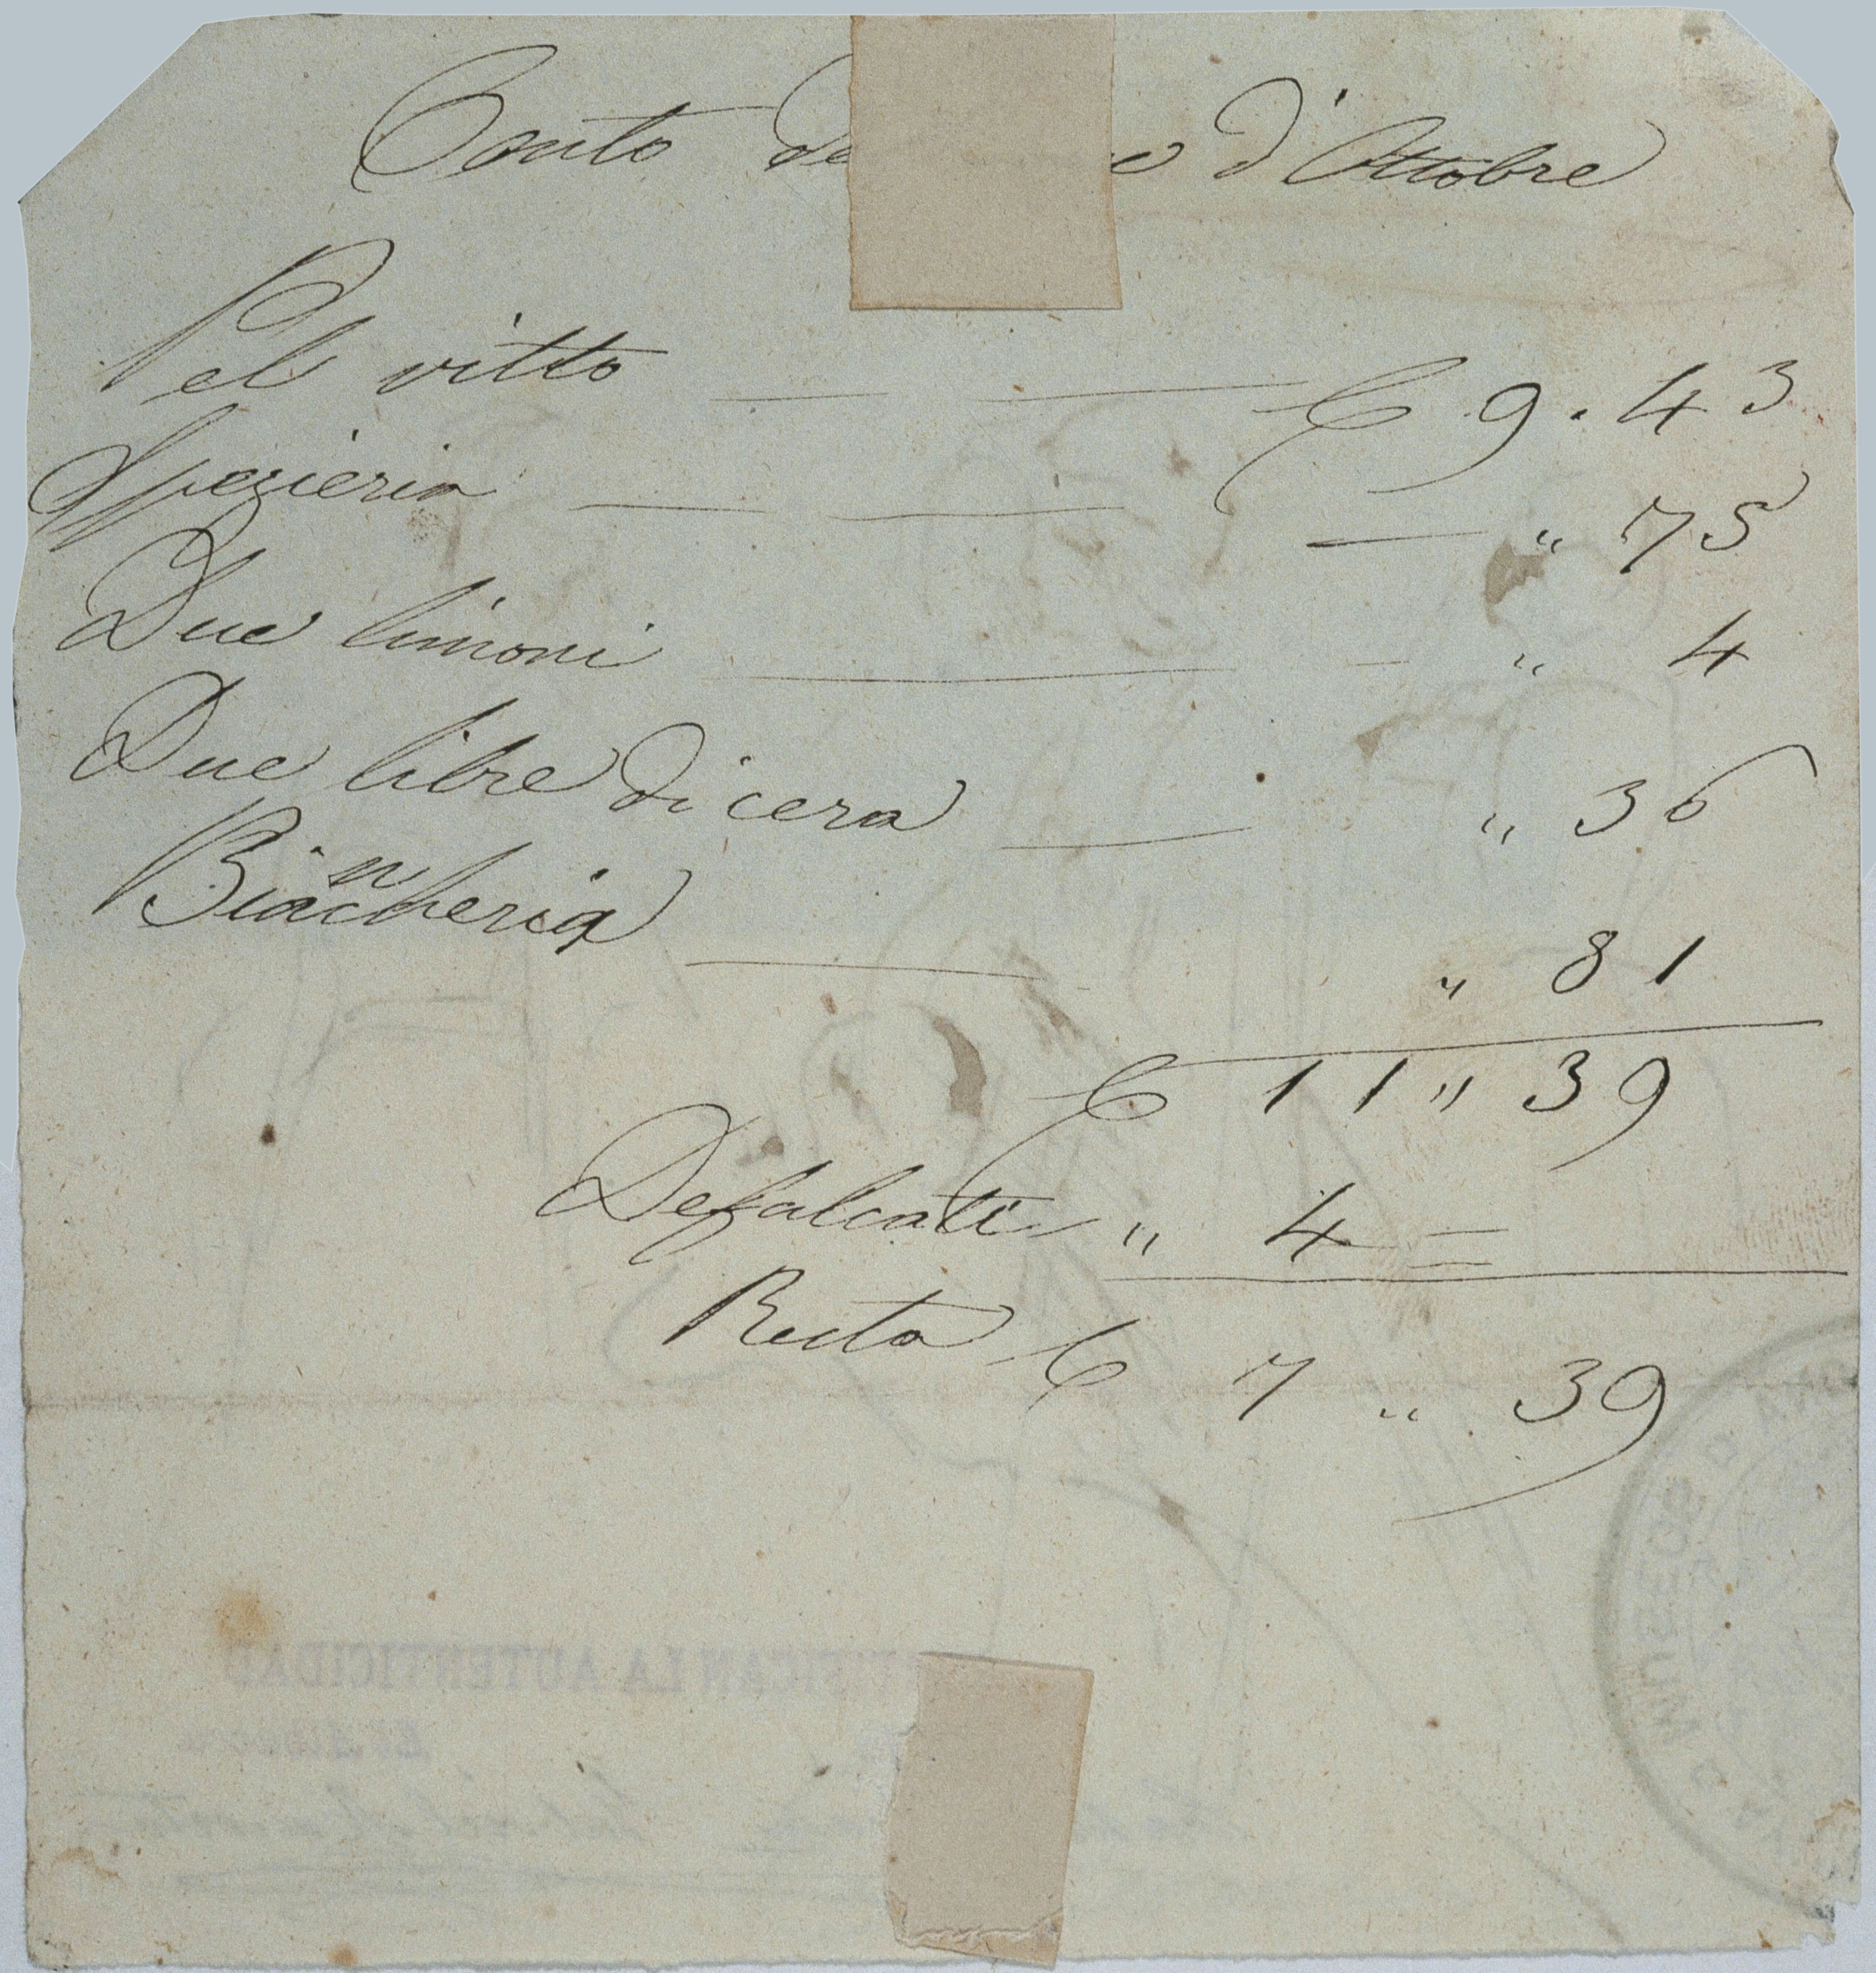 Conto de e d'Ottobre
Pel vitto £ 9. 43
Spezieria — " 75
Due limoni " 4
Due libre di cera " 36
Biancheria " 81
£ 11 " 39
Defalcati " 4 =
Resta £ 7 " 39
LA AUTENTICIDAD